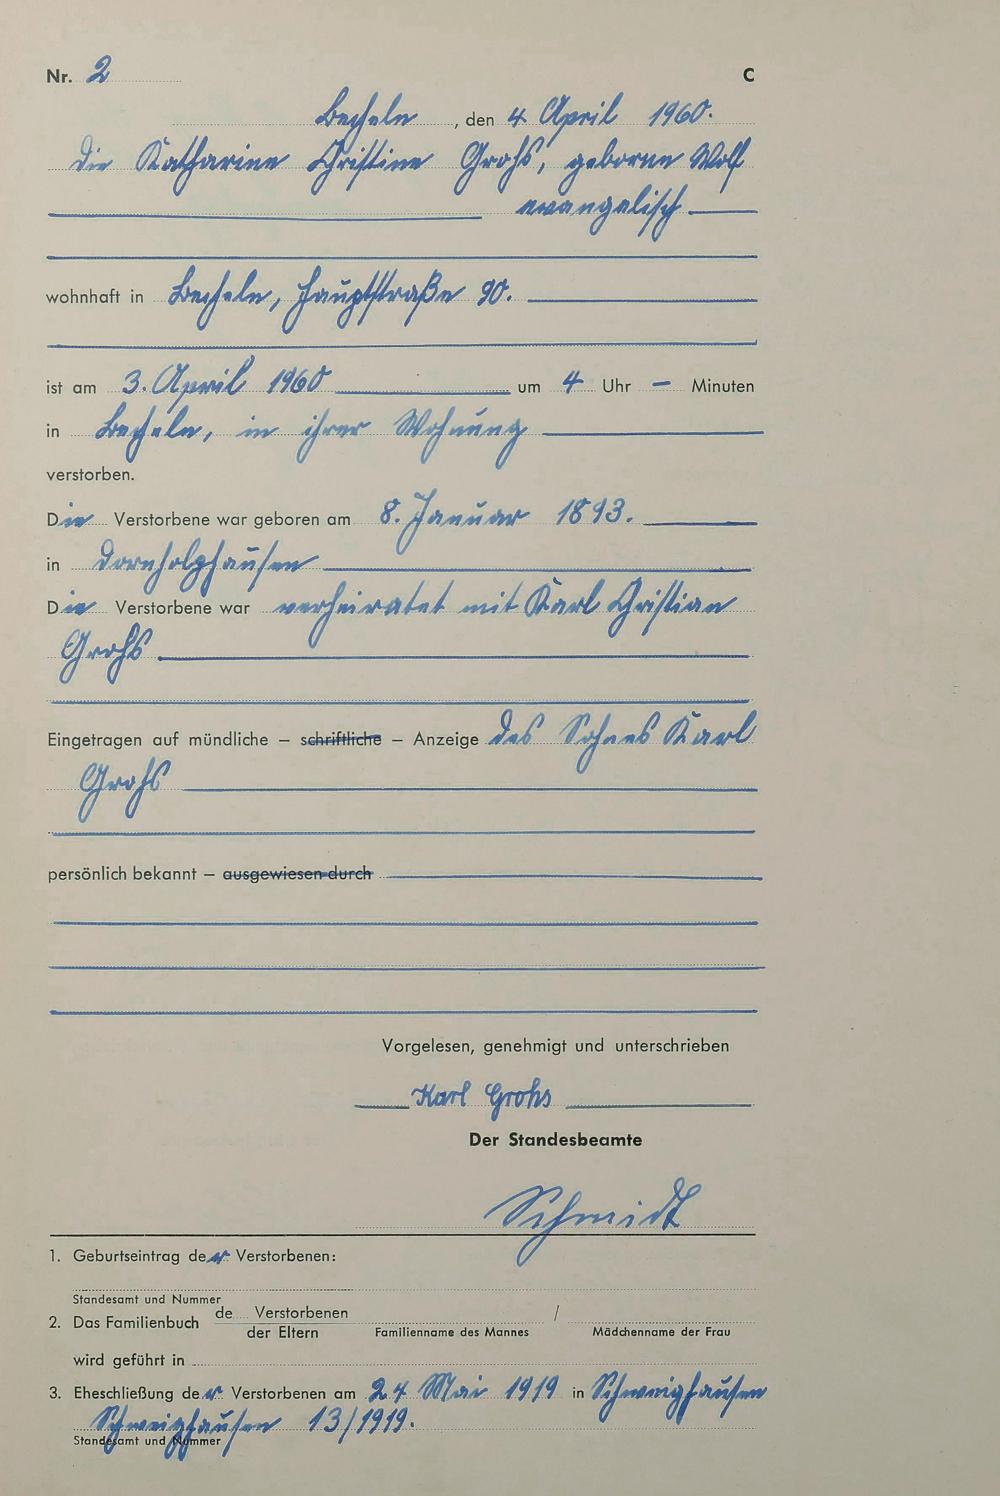 Nr. 2 C
Becheln, den 4 April 1960.
Die Katharine Christine Grohs, geborene Wolf
evangelisch
wohnhaft in Becheln, Hauptstraße 90.
ist am 3. April 1960 um 4 Uhr – Minuten
in Becheln, in ihrer Wohnung
verstorben.
Die Verstorbene war geboren am 8. Januar 1893.
in Dornholzhausen
Die Verstorbene war verheiratet mit Karl Christian
Grohs
Eingetragen auf mündliche – schriftliche – Anzeige des Sohnes Karl
Grohs
persönlich bekannt – ausgewiesen durch
Vorgelesen, genehmigt und unterschrieben
Karl Grohs
Der Standesbeamte
Schmidt
1. Geburtseintrag der Verstorbenen:
Standesamt und Nummer
2. Das Familienbuch de Verstorbenen /
der Eltern Familienname des Mannes Mädchenname der Frau
wird geführt in
3. Eheschließung der Verstorbenen am 24 Mai 1919 in Schweighausen
Schweighausen 13/1919.
Standesamt und Nummer